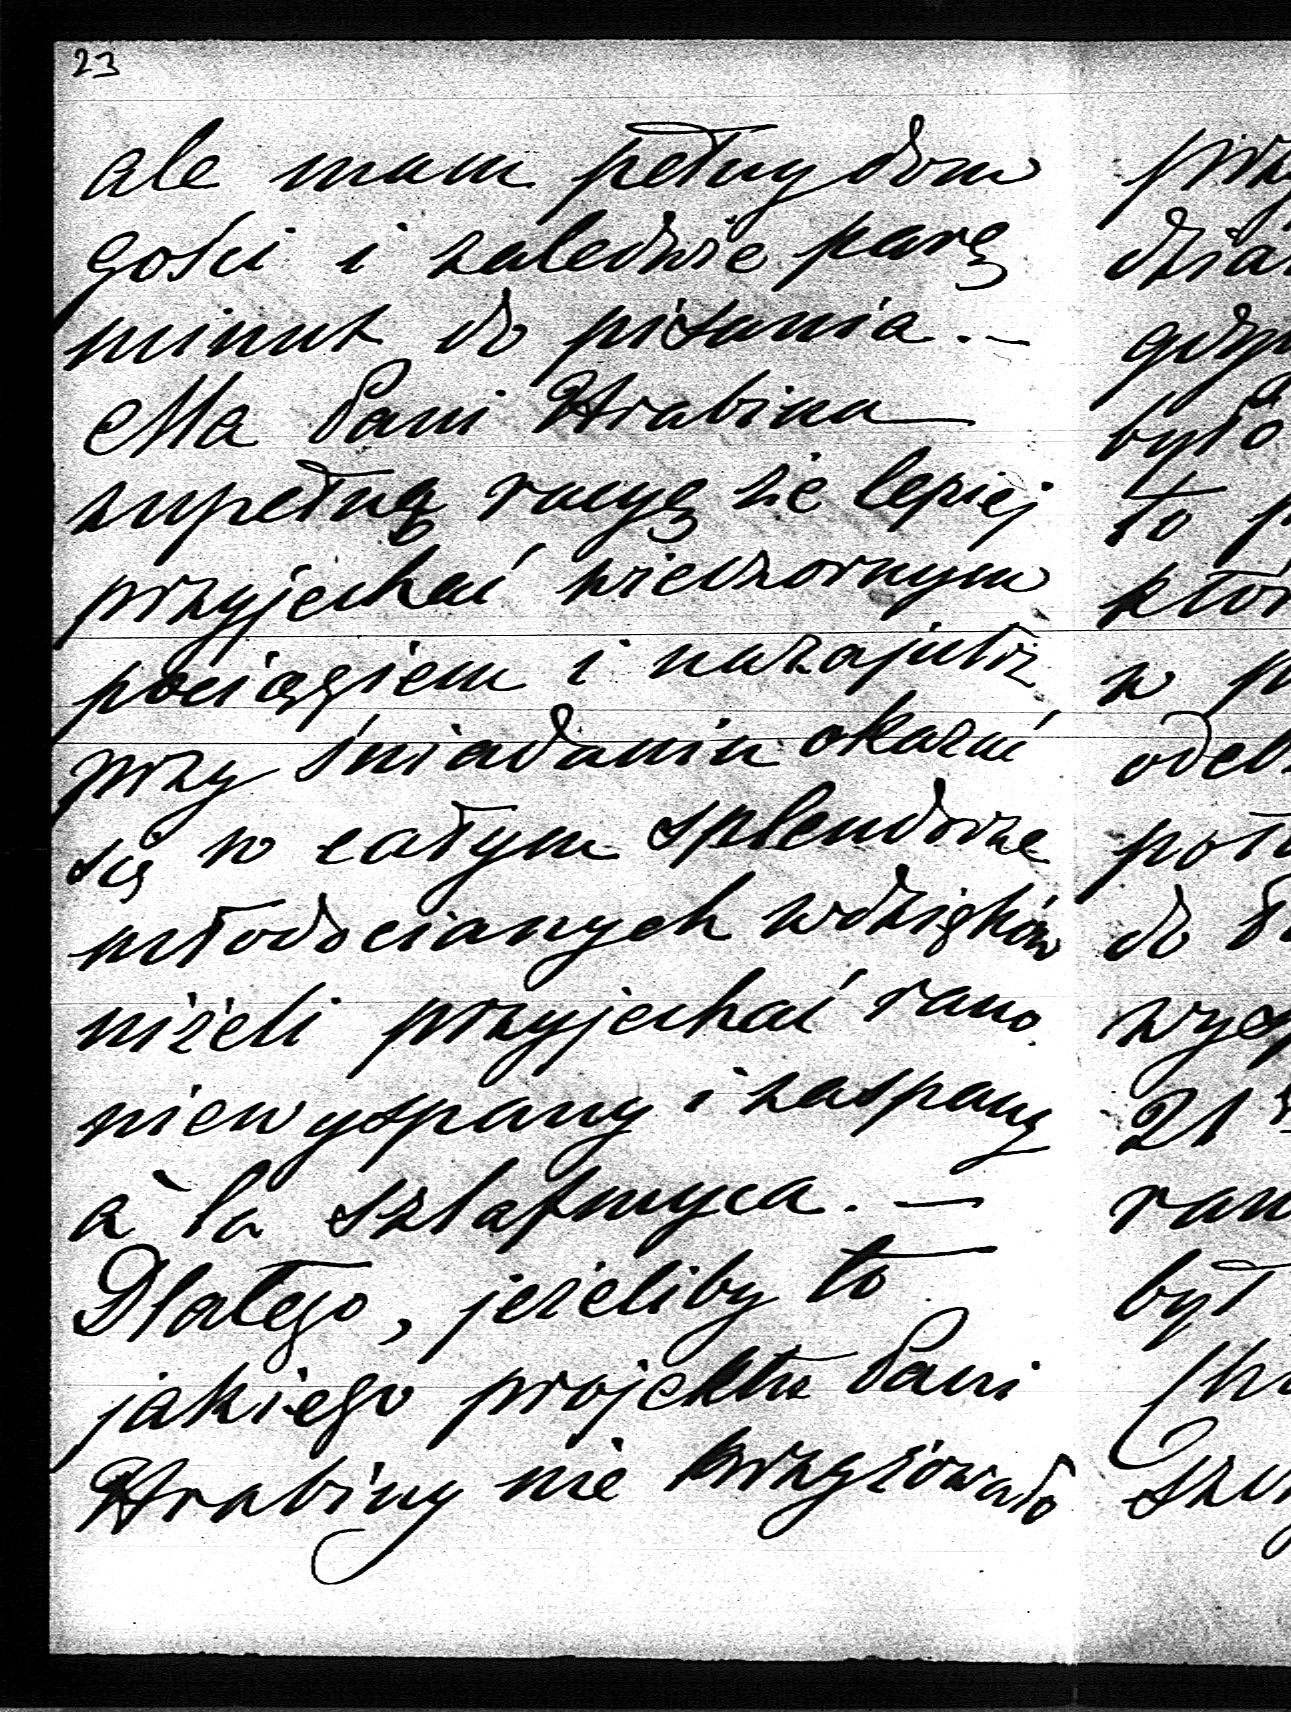 23
ale mam pełny dom
gości i zaledwie parę
minut do pisania. —
Ma Pani Hrabina
zupełną racyę że lepiej
przyjechać wieczornym
pociągiem i nazajutrz
przy śniadaniu okazać
się w całym splendorze
młodocianych wdzięków
niżeli przyjechać rano
niewyspany i zaspany
à la szlafmyca. —
Dlatego, jeżeliby to
jakiego projektu Pani
Hrabiny nie krzyżowało
przy
gdy
było
to
któr
w
do
21
był